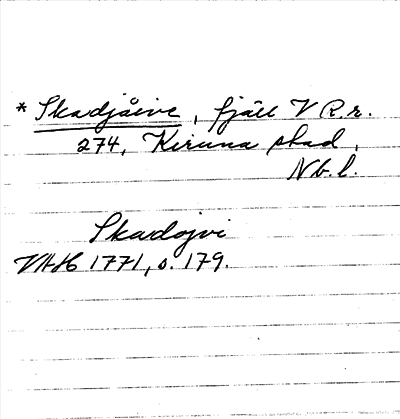 * Skadjåive, fjäll V R.r.
274, Kiruna stad,
Nb.l.
Skadojvi
VAH 1771, s. 179.